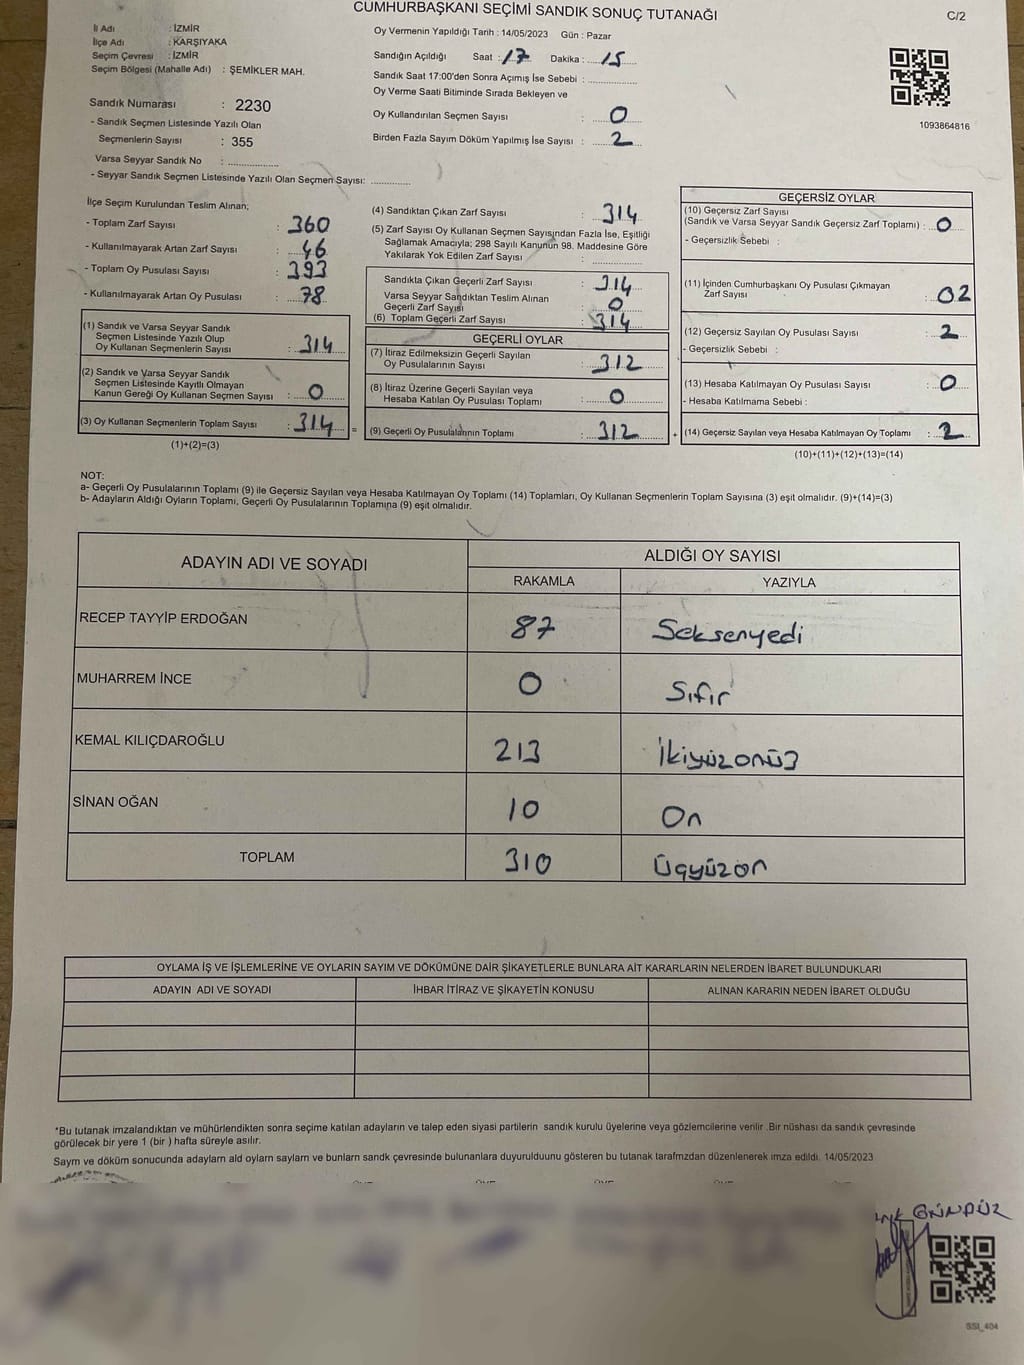 CUMHURBAŞKANI SEÇİMİ SANDIK SONUÇ TUTANAĞI
C/2
İl Adı : İZMİR
İlçe Adı : KARŞIYAKA
Seçim Çevresi : İZMİR
Seçim Bölgesi (Mahalle Adı) : ŞEMİKLER MAH.
Oy Vermenin Yapıldığı Tarih : 14/05/2023 Gün : Pazar
Sandığın Açıldığı Saat : 17 Dakika : 15
Sandık Saat 17:00'den Sonra Açımış İse Sebebi :
Oy Verme Saati Bitiminde Sırada Bekleyen ve
Oy Kullandırılan Seçmen Sayısı : 0
Birden Fazla Sayım Döküm Yapılmış İse Sayısı : 2
1093864816
Sandık Numarası : 2230
- Sandık Seçmen Listesinde Yazılı Olan
Seçmenlerin Sayısı : 355
Varsa Seyyar Sandık No :
- Seyyar Sandık Seçmen Listesinde Yazılı Olan Seçmen Sayısı:
İlçe Seçim Kurulundan Teslim Alınan;
- Toplam Zarf Sayısı : 360
- Kullanılmayarak Artan Zarf Sayısı : 46
- Toplam Oy Pusulası Sayısı : 393
- Kullanılmayarak Artan Oy Pusulası : 78
(1) Sandık ve Varsa Seyyar Sandık
Seçmen Listesinde Yazılı Olup
Oy Kullanan Seçmenlerin Sayısı : 314
(2) Sandık ve Varsa Seyyar Sandık
Seçmen Listesinde Kayıtlı Olmayan
Kanun Gereği Oy Kullanan Seçmen Sayısı : 0
(3) Oy Kullanan Seçmenlerin Toplam Sayısı : 314 =
(1)+(2)=(3)
(4) Sandıktan Çıkan Zarf Sayısı : 314
(5) Zarf Sayısı Oy Kullanan Seçmen Sayısından Fazla İse, Eşitliği
Sağlamak Amacıyla; 298 Sayılı Kanunun 98. Maddesine Göre
Yakılarak Yok Edilen Zarf Sayısı :
Sandıkta Çıkan Geçerli Zarf Sayısı : 314
Varsa Seyyar Sandıktan Teslim Alınan
Geçerli Zarf Sayısı : 0
(6) Toplam Geçerli Zarf Sayısı : 314
GEÇERLİ OYLAR
(7) İtiraz Edilmeksizin Geçerli Sayılan
Oy Pusulalarının Sayısı : 312
(8) İtiraz Üzerine Geçerli Sayılan veya
Hesaba Katılan Oy Pusulası Toplamı : 0
(9) Geçerli Oy Pusulalarının Toplamı : 312 +
GEÇERSİZ OYLAR
(10) Geçersiz Zarf Sayısı
(Sandık ve Varsa Seyyar Sandık Geçersiz Zarf Toplamı) : 0
- Geçersizlik Sebebi :
(11) İçinden Cumhurbaşkanı Oy Pusulası Çıkmayan
Zarf Sayısı : 02
(12) Geçersiz Sayılan Oy Pusulası Sayısı : 2
- Geçersizlik Sebebi :
(13) Hesaba Katılmayan Oy Pusulası Sayısı : 0
- Hesaba Katılmama Sebebi :
(14) Geçersiz Sayılan veya Hesaba Katılmayan Oy Toplamı : 2
(10)+(11)+(12)+(13)=(14)
NOT:
a- Geçerli Oy Pusulalarının Toplamı (9) ile Geçersiz Sayılan veya Hesaba Katılmayan Oy Toplamı (14) Toplamları, Oy Kullanan Seçmenlerin Toplam Sayısına (3) eşit olmalıdır. (9)+(14)=(3)
b- Adayların Aldığı Oyların Toplamı, Geçerli Oy Pusulalarının Toplamına (9) eşit olmalıdır.
ADAYIN ADI VE SOYADI ALDIĞI OY SAYISI
RAKAMLA YAZIYLA
RECEP TAYYİP ERDOĞAN 87 Seksenyedi
MUHARREM İNCE 0 Sıfır
KEMAL KILIÇDAROĞLU 213 İkiyüzonüç
SİNAN OĞAN 10 On
TOPLAM 310 Üçyüzon
OYLAMA İŞ VE İŞLEMLERİNE VE OYLARIN SAYIM VE DÖKÜMÜNE DAİR ŞİKAYETLERLE BUNLARA AİT KARARLARIN NELERDEN İBARET BULUNDUKLARI
ADAYIN ADI VE SOYADI İHBAR İTİRAZ VE ŞİKAYETİN KONUSU ALINAN KARARIN NEDEN İBARET OLDUĞU
*Bu tutanak imzalandıktan ve mühürlendikten sonra seçime katılan adayların ve talep eden siyasi partilerin sandık kurulu üyelerine veya gözlemcilerine verilir .Bir nüshası da sandık çevresinde
görülecek bir yere 1 (bir ) hafta süreyle asılır.
Saym ve döküm sonucunda adaylarn ald oylarn saylarn ve bunlarn sandk çevresinde bulunanlara duyurulduunu gösteren bu tutanak tarafmzdan düzenlenerek imza edildi. 14/05/2023
GÜNDÜZ
SSI_404